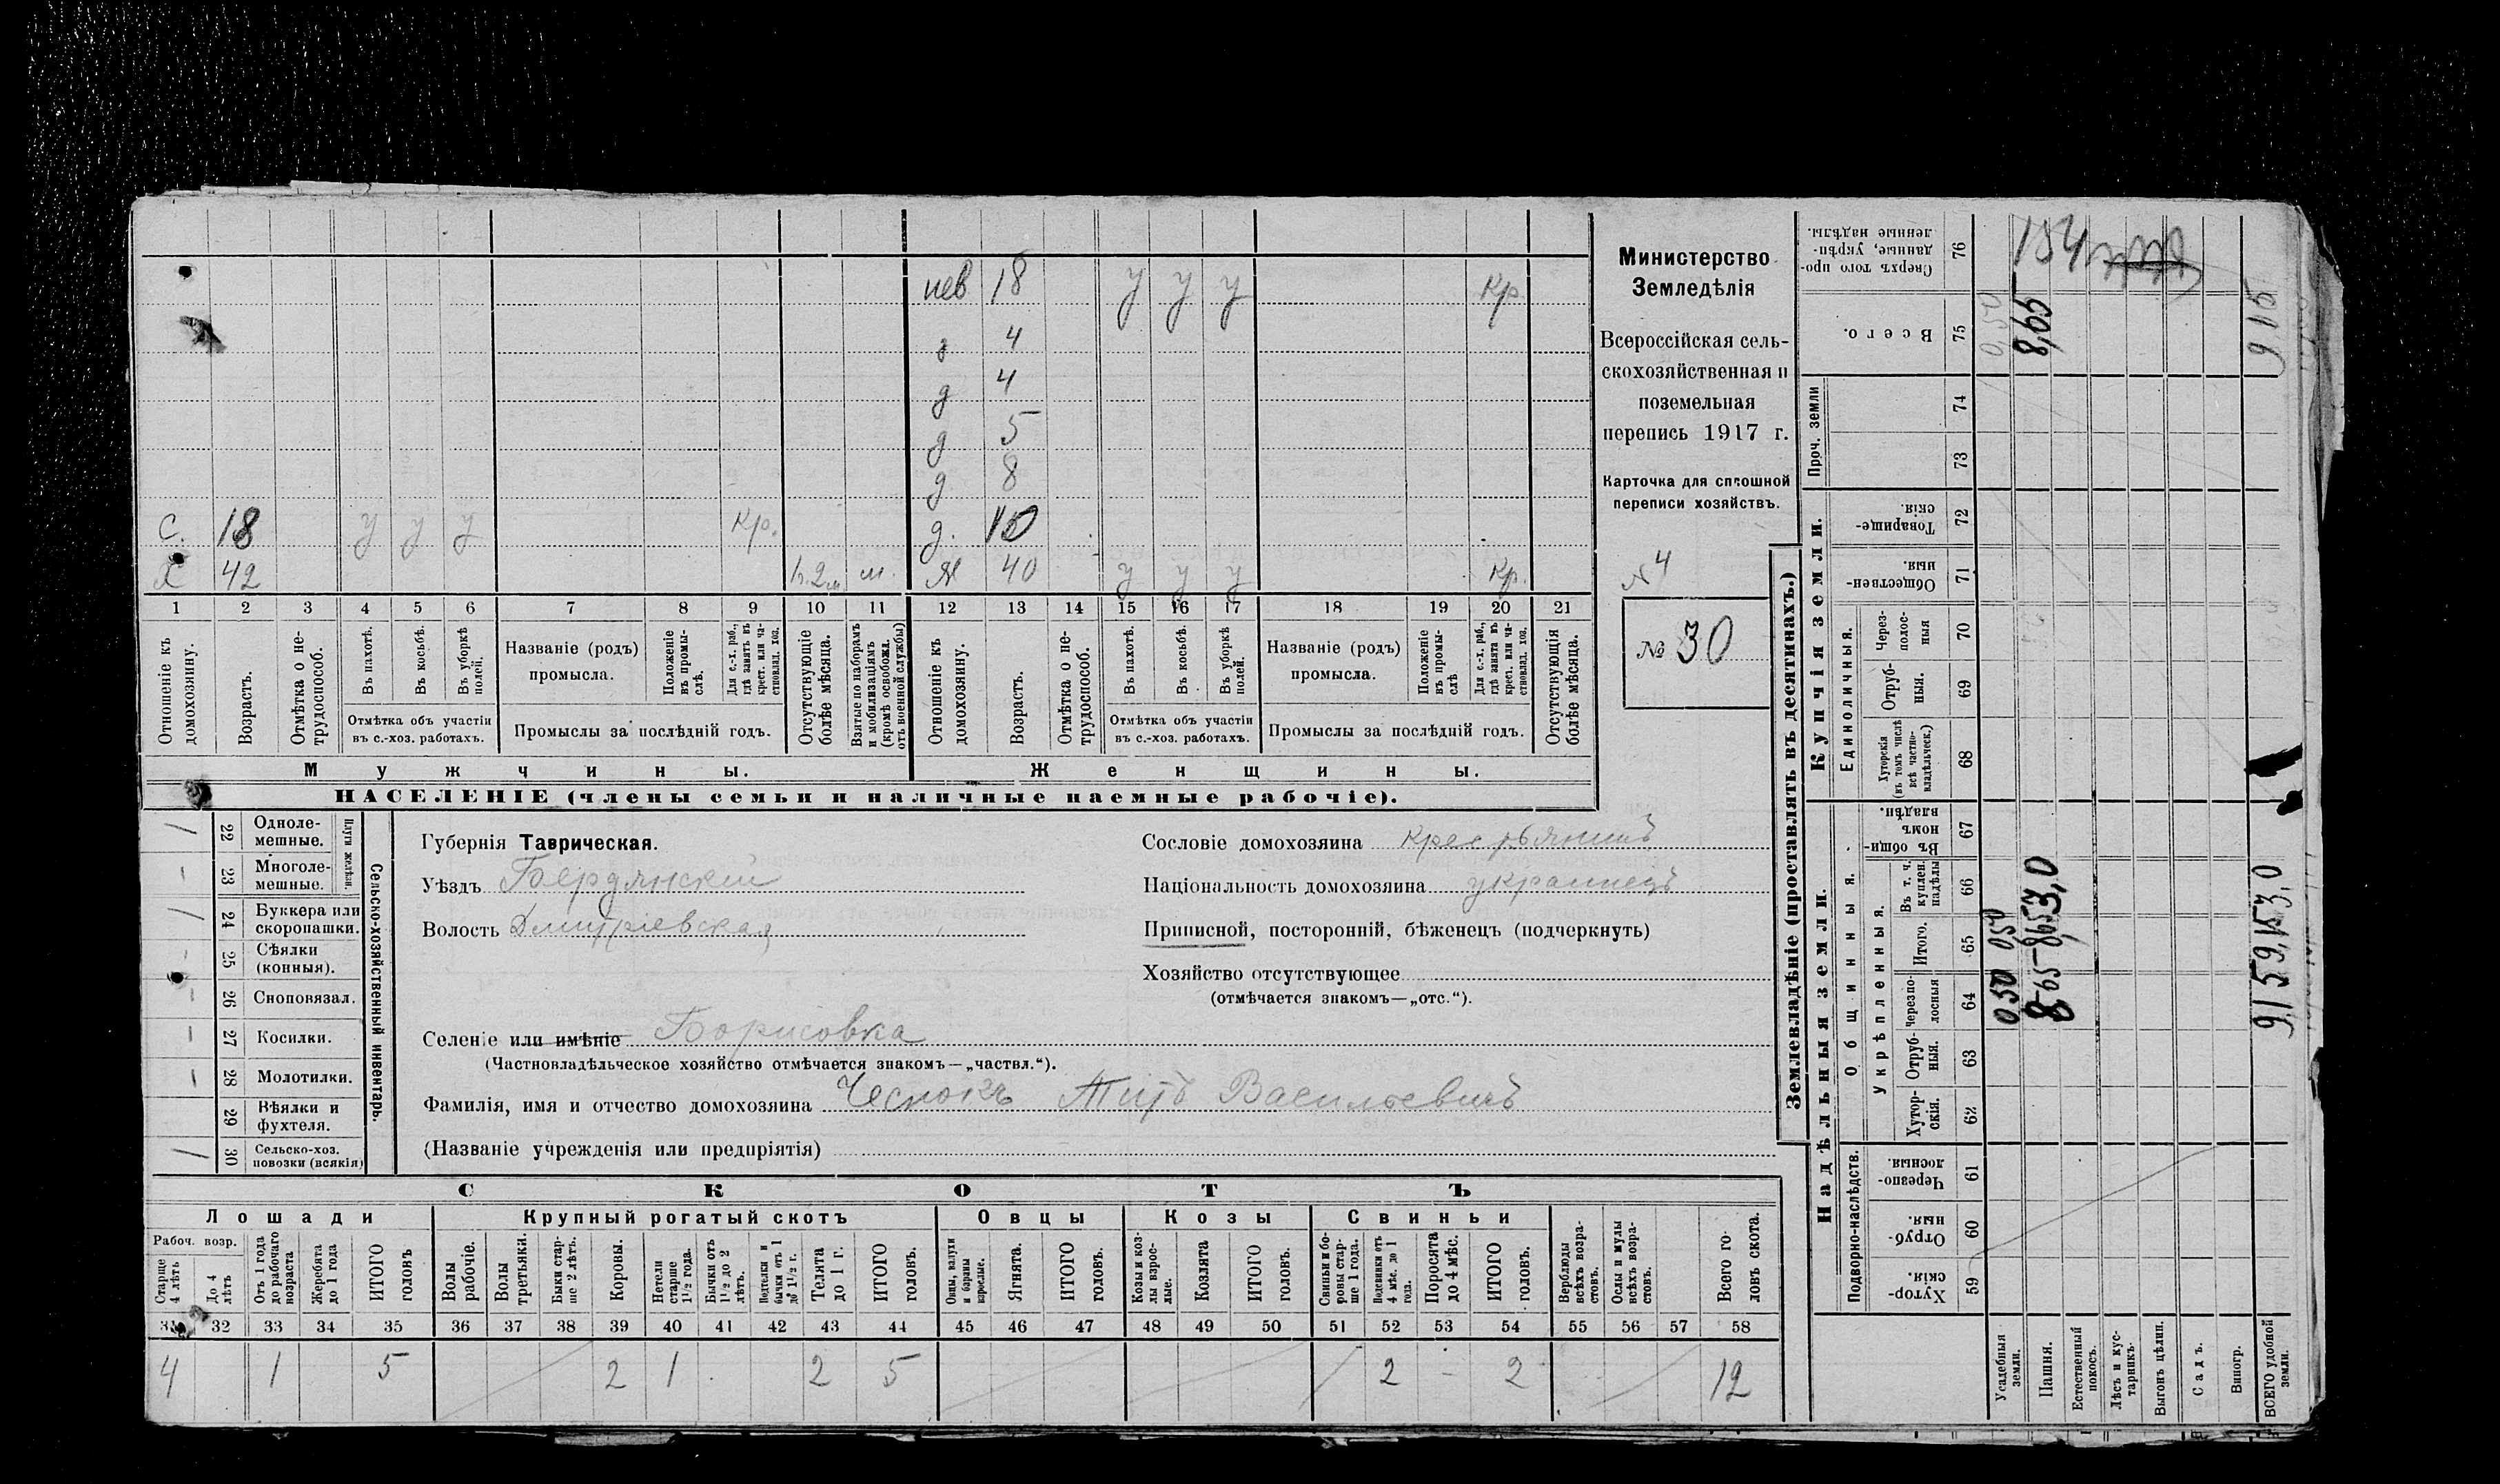 нев 18 у у у кр
д 4
д 4
д 5
д 8
С. 18 у у у кр. д. 10
Х 42 1 г. 2 м м. Ж 40 у у у кр.
1 2 3 4 5 6 7 8 9 10 11 12 13 14 15 16 17 18 19 20 21
Отношеніе къ домохозяину.
Возрастъ.
Отмѣтка о нетрудоспособ.
Въ пахотѣ.
Въ косьбѣ.
Въ уборкѣ полей.
Отмѣтка объ участіи въ с.-хоз. работахъ.
Названіе (родъ) промысла.
Положеніе въ промыслѣ.
Для с.-х. раб., гдѣ занятъ въ крест. или частновлад. хоз.
Промыслы за послѣдній годъ.
Отсутствующіе болѣе мѣсяца.
Взятые по наборамъ и мобилизаціямъ (кромѣ освобожд. отъ военной службы)
Отношеніе къ домохозяину.
Возрастъ.
Отмѣтка о нетрудоспособ.
Въ пахотѣ.
Въ косьбѣ.
Въ уборкѣ полей.
Отмѣтка объ участіи въ с.-хоз. работахъ.
Названіе (родъ) промысла.
Положеніе въ промыслѣ
Для с.-х. раб., гдѣ занята въ крест. или частновлад. хоз.
Промыслы за послѣдній годъ.
Отсутствующія болѣе мѣсяца.
Мужчины. Женщины.
НАСЕЛЕНІЕ (члены семьи и наличные наемные рабочіе).
Министерство
Земледѣлія
Всероссійская сель-
скохозяйственная и
поземельная
перепись 1917 г.
Карточка для сплошной
переписи хозяйствъ.
N 4
№ 30
/ 22 Одноле-мешные. Плуги желѣзн.
– 23 Многоле-мешные.
/ 24 Буккера или скоропашки.
– 25 Сѣялки (конныя).
– 26 Сноповязал.
– 27 Косилки.
– 28 Молотилки.
29 Вѣялки и фухтеля.
/ 30 Сельско-хоз. повозки (всякія)
Сельско-хозяйственный инвентарь.
Губернія Таврическая.
Уѣздъ Бердянскій
Волость Дмитріевская
Селеніе или имѣніе Борисовка
(Частновладѣльческое хозяйство отмѣчается знакомъ—„частвл.“).
Фамилія, имя и отчество домохозяина Чеснокъ Титъ Васильевичъ
(Названіе учрежденія или предпріятія)
Сословіе домохозяина крестьянинъ
Національность домохозяина украинецъ
Приписной, посторонній, бѣженецъ (подчеркнуть)
Хозяйство отсутствующее
(отмѣчается знакомъ—„отс.“).
СКОТЪ
Лошади Крупный рогатый скотъ Овцы Козы Свиньи
Рабоч. возр.
Старше 4 лѣтъ
До 4 лѣтъ
Отъ 1 года до рабочаго возраста
Жеребята до 1 года
ИТОГО головъ
Волы рабочіе.
Волы третьяки.
Быки старше 2 лѣтъ.
Коровы.
Нетели старше 1½ года.
Бычки отъ 1½ до 2 лѣтъ.
Подтелки и бычки отъ 1 до 1½ г.
Телята до 1 г.
ИТОГО головъ.
Овцы, валухи и бараны взрослые.
Ягнята.
ИТОГО головъ.
Козы и козлы взрослые.
Козлята
ИТОГО головъ.
Свиньи и боровы старше 1 года.
Подсвинки отъ 4 мѣс. до 1 года.
Поросята до 4 мѣс.
ИТОГО головъ.
Верблюды всѣхъ возрастовъ.
Ослы и мулы всѣхъ возрастовъ.
Всего головъ скота.
31 32 33 34 35 36 37 38 39 40 41 42 43 44 45 46 47 48 49 50 51 52 53 54 55 56 57 58
4 1 5 2 1 2 5 2 – 2 12
Землевладѣніе (проставлять въ десятинахъ.)
Надѣльныя земли. Купчія земли. Проч. земли
Подворно-наслѣдств.
Общинныя.
Укрѣпленныя.
Единоличныя.
Хуторскія. 59
Отрубныя. 60
Черезполосныя. 61
Хуторскія. 62
Отрубныя. 63
Черезполосныя 64
Итого. 65
Въ т. ч. куплен. надѣлы 66
Въ общинномъ владѣн. 67
Хуторскія (въ томъ числѣ всѣ частновладѣльческ.) 68
Отрубныя. 69
Черезполосныя 70
Общественныя. 71
Товарищескія. 72
73
74
Всего. 75
Сверхъ того проданные, укрѣпленные надѣлы. 76
Усадебныя земли. 050 050 0,50
Пашня. 865 865 3,0 8,65 184
Естественный покосъ.
Лѣсъ и кустарникъ.
Выгонъ цѣлин.
Садъ.
Виногр.
ВСЕГО удобной земли. 915 9,15 3,0 915